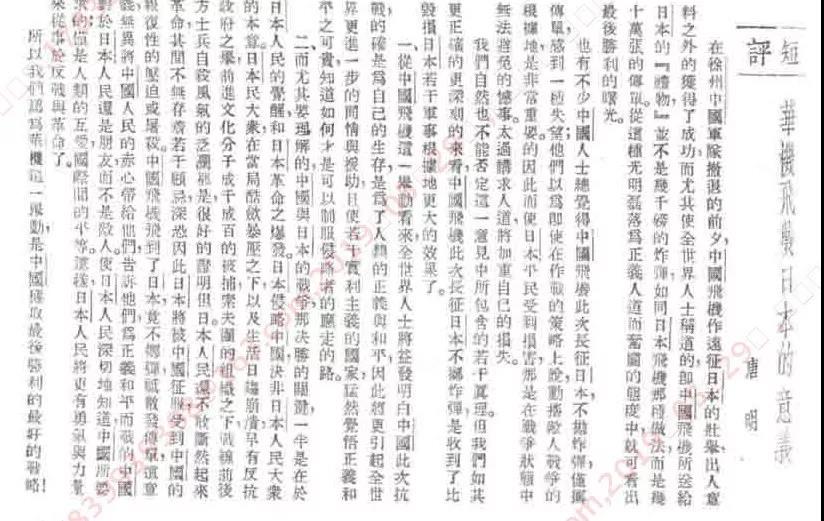 短評
華機飛襲日本的意義
唐明
在徐州中國軍隊撤退的前夕,中國飛機作遠征日本的壯舉出人意
料之外的獲得了成功,而尤其使全世界人士稱道的,卽中國飛機所送給
日本的『禮物』並不是幾千磅的炸彈,如同日本飛機那種做法,而是幾
十萬張的傳單。從這種光明磊落爲正義人道而奮鬥的態度中,就可看出
最後勝利的曙光。
也有不少中國人士總覺得中國飛機此次長征日本,不拋炸彈僅擲
傳單,感到一種失望;他們以爲卽使在作戰的策略上說,動搖敵人戰爭的
根據地是非常重要的,因此而使日本平民受到損害,那是在戰爭狀態中
無法避免的憾事,太過講求人道將加重自己的損失。
我們自然也不能否定這一意見中所包含的若干眞理,但我們如其
更正確的更深刻的來看中國飛機此次長征日本不擲炸彈,是收到了比
毀損日本若干軍事根據地更大的效果了。
一、從中國飛機這一舉動看來,全世界人士將益發明白中國此次抗
戰的確是爲自己的生存,是爲了人類的正義與和平,因此將更引起全世
界更進一步的同情與援助,且使若干實利主義的國家,猛然覺悟正義和
平之可貴,知道如何才是可以制服侵略者的應走的路。
二、而尤其要理解的,中國與日本的戰爭,那决勝的關鍵,一半是在於
日本人民的覺醒,和日本革命之爆發。日本侵略中國,決非日本人民大衆
的本意。日本民大衆,在當局酷斂暴壓之下,以及生活日趨崩潰,早有反抗
政府之舉,前進文化分子成千成百的被捕,索夫團的組織之下,戰線前後
方士兵自殺風氣的泛濫,那是很好的證明。但日本人民還不敢斷然起來
革命,其間不無存着若干顧忌,深恐因此日本將被中國征服,受到中國的
報復性的壓迫或屠殺。中國飛機飛到了日本,竟不擲彈祇散發傳單,這意
義無異將中國人民的赤心帶給他們,告訴他們爲正義和平而戰的中國
對於日本人民還是朋友而不是敵人。使日本人民深切地知道中國所要
求的僅是人類的互愛,國際間的平等。這樣,日本人民將更有勇氣與力量
來從事於反戰與革命了。
所以我們認爲華機這一舉動是中國獲取最後勝利的最好的戰略!